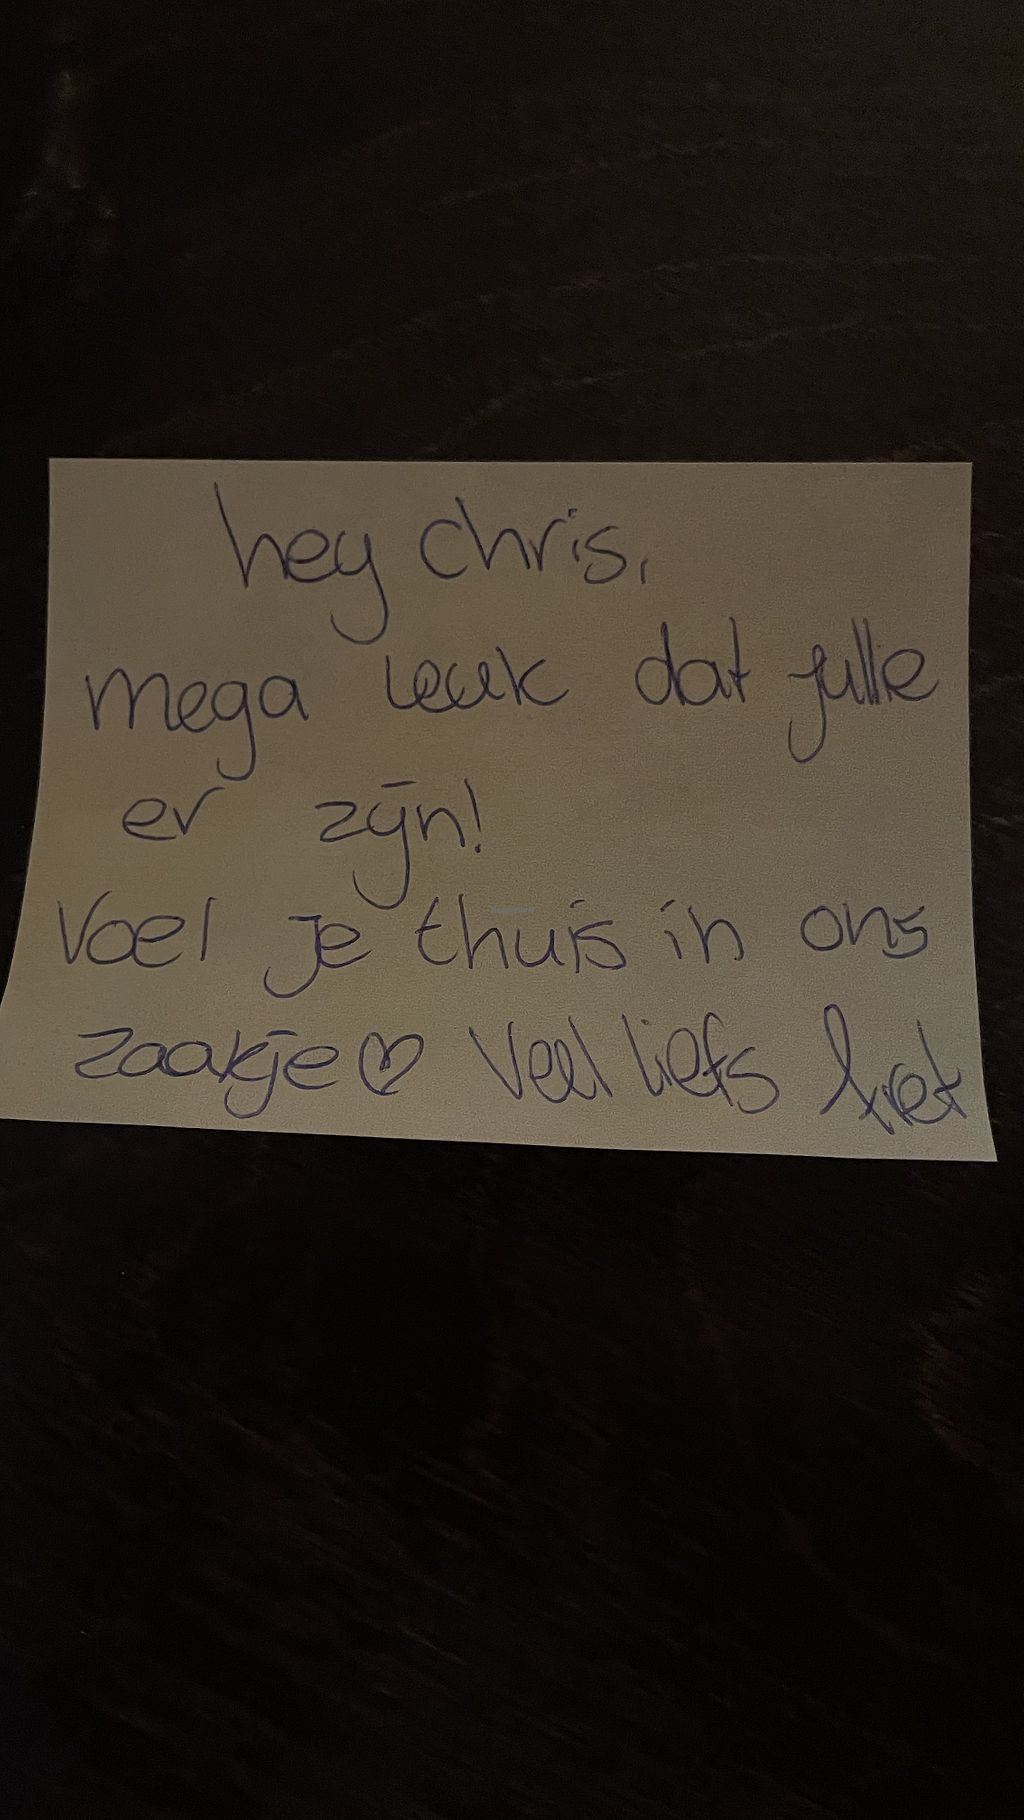 hey chris,
mega leuk dat jullie
er zijn!
Voel je thuis in ons
zaakje♡ Veel liefs